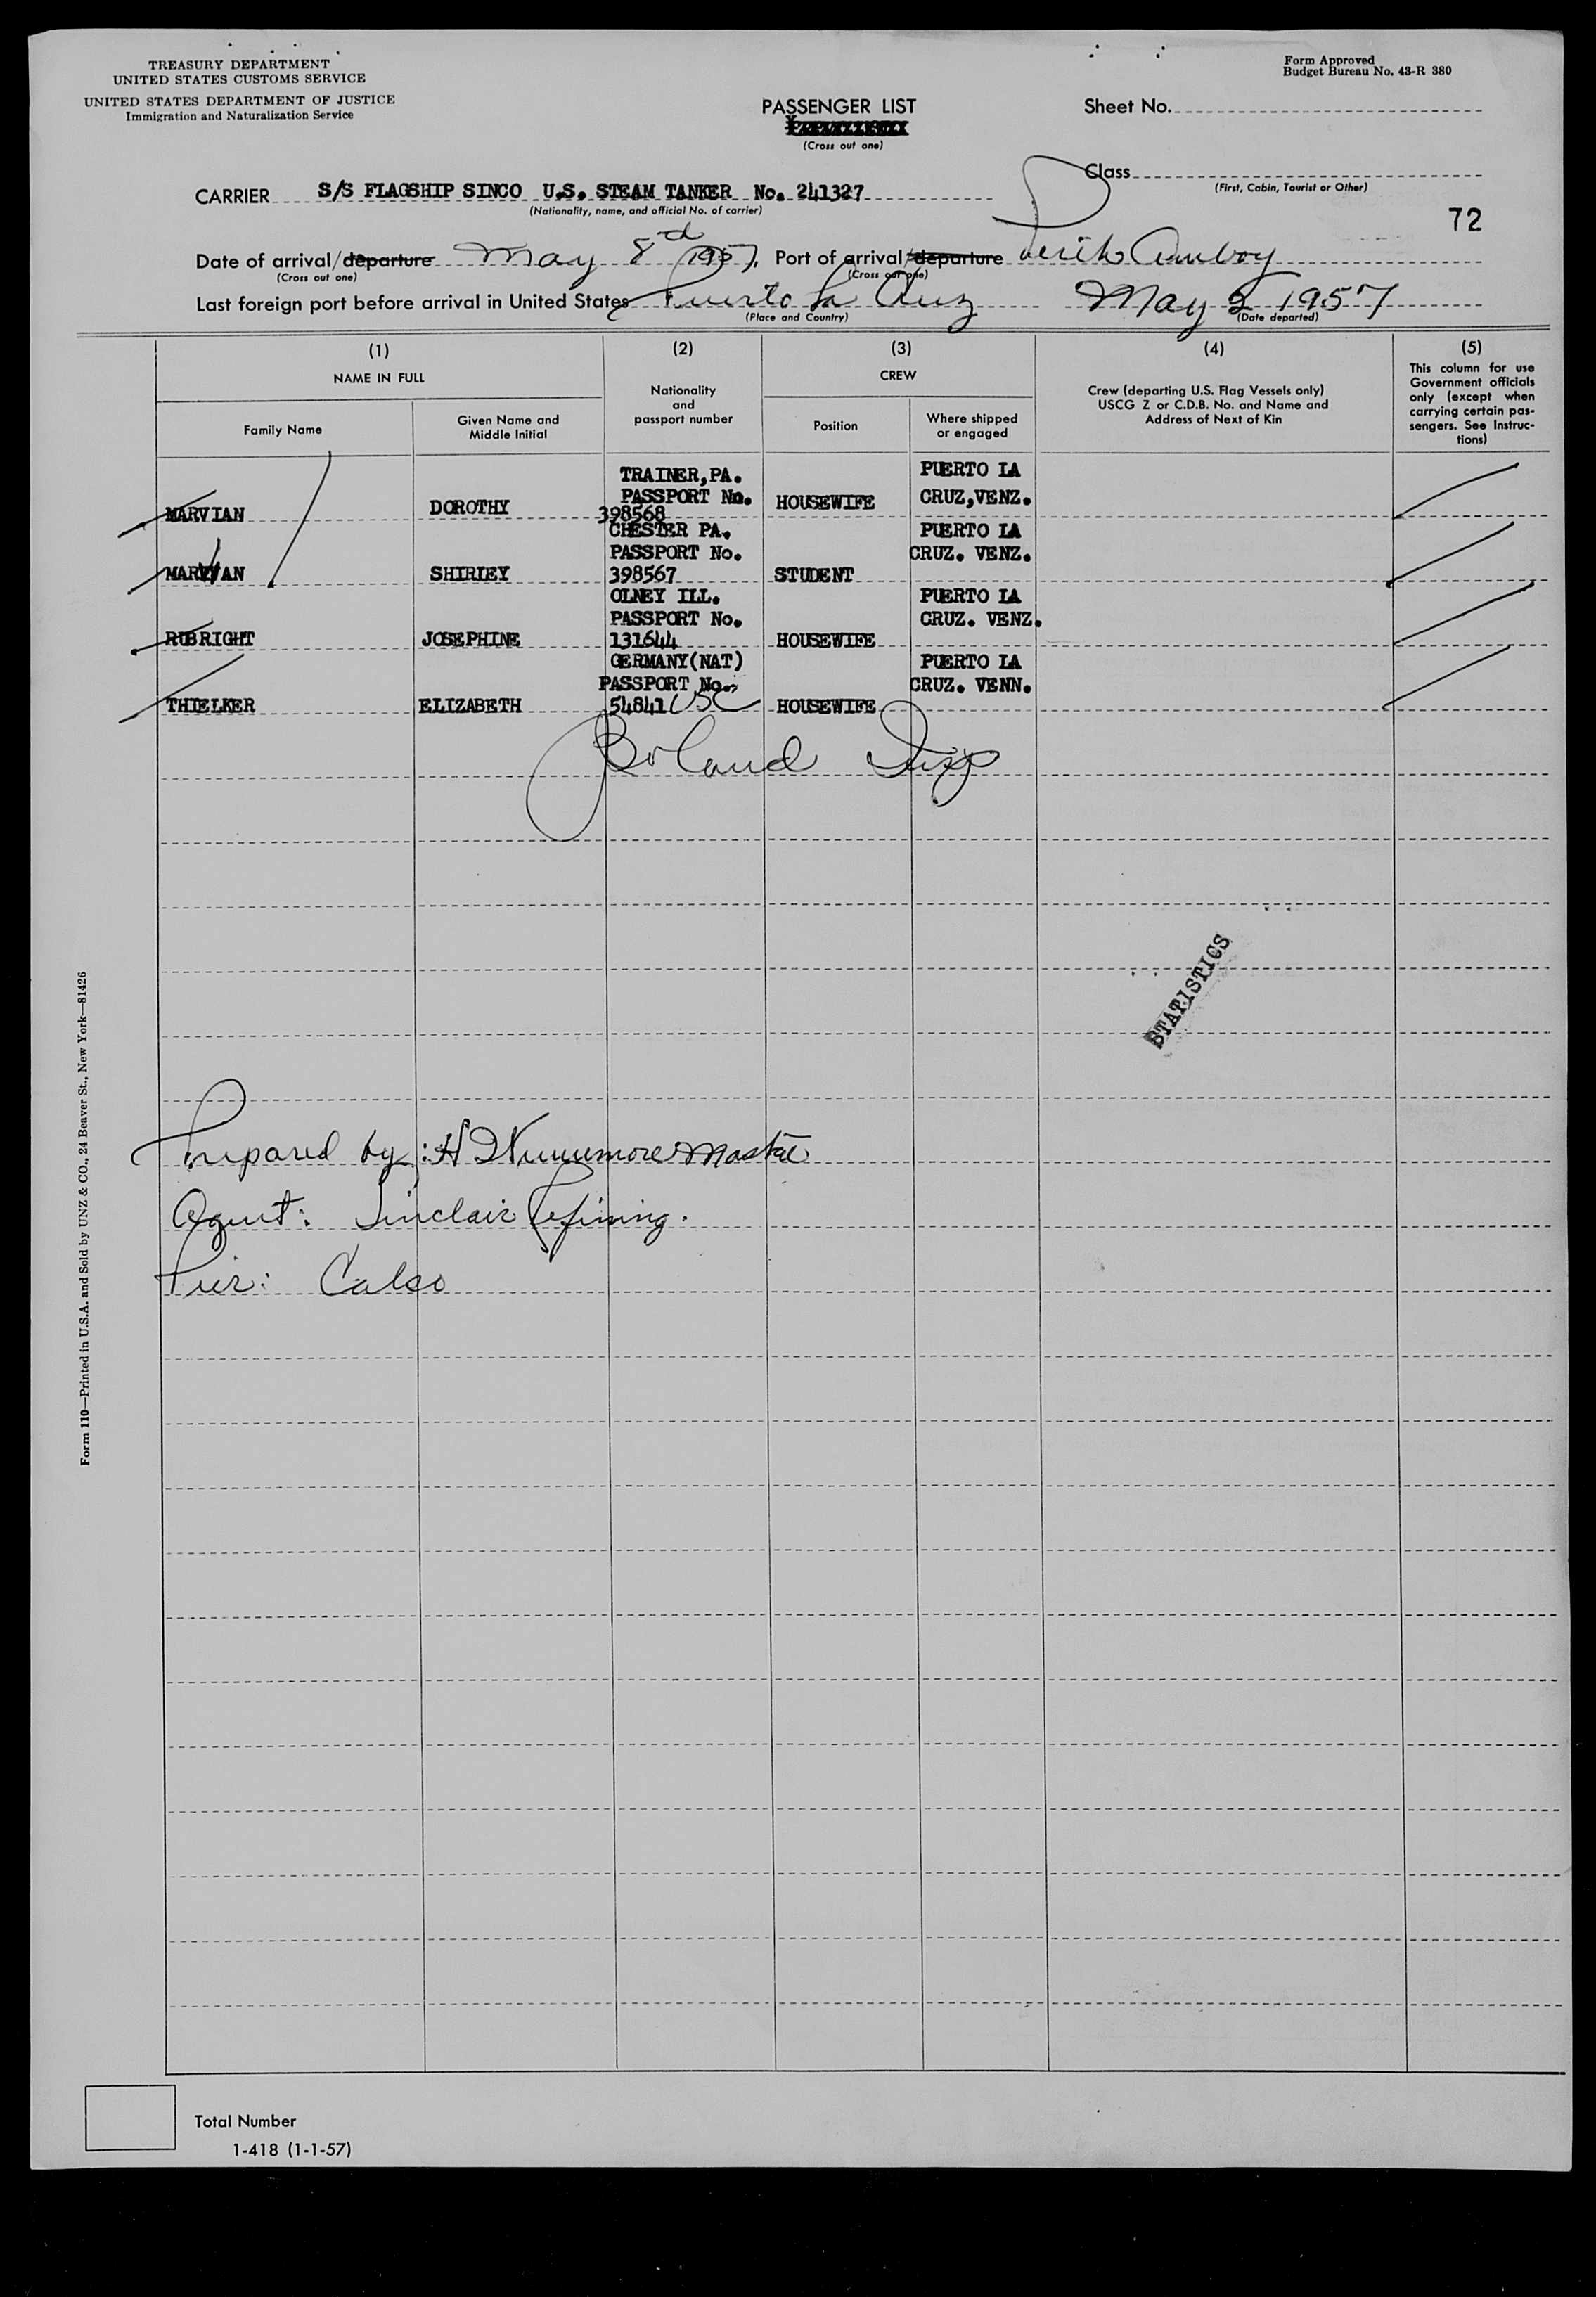 TREASURY DEPARTMENT
UNITED STATES CUSTOMS SERVICE
UNITED STATES DEPARTMENT OF JUSTICE
Immigration and Naturalization Service
Form Approved
Budget Bureau No. 43-R 380
PASSENGER LIST
(Cross out one)
Sheet No.
Class
(First, Cabin, Tourist or Other)
CARRIER S/S FLAGSHIP SINCO U.S. STEAM TANKER No. 241327
(Nationality, name, and official No. of carrier)
72
Date of arrival/departure May 8d 1957. Port of arrival/departure Perth Amboy
(Cross out one) (Cross out one)
Last foreign port before arrival in United States Puerto la Cruz May 2 1957
(Place and Country) (Date departed)
(1) (2) (3) (4) (5)
NAME IN FULL
Family Name
Given Name and
Middle Initial
Nationality
and
passport number
CREW
Position
Where shipped
or engaged
Crew (departing U.S. Flag Vessels only)
USCG Z or C.D.B. No. and Name and
Address of Next of Kin
This column for use
Government officials
only (except when
carrying certain pas-
sengers. See Instruc-
tions)
TRAINER,PA. PUERTO LA
PASSPORT No. CRUZ,VENZ.
MARVIAN DOROTHY 398568 HOUSEWIFE
CHESTER PA. PUERTO LA
PASSPORT No. CRUZ. VENZ.
MARVIAN SHIRLEY 398567 STUDENT
OLNEY ILL. PUERTO LA
PASSPORT No. CRUZ. VENZ.
RUBRIGHT JOSEPHINE 131644 HOUSEWIFE
GERMANY(NAT) PUERTO LA
PASSPORT No. CRUZ. VENN.
THIELKER ELIZABETH 54841 USC HOUSEWIFE
Boland
STATISTICS
Prepared by: H Master
Agent: Sinclair Refining.
Pier: Calso
Form 110—Printed in U.S.A. and Sold by UNZ & CO., 24 Beaver St., New York—81426
Total Number
1-418 (1-1-57)